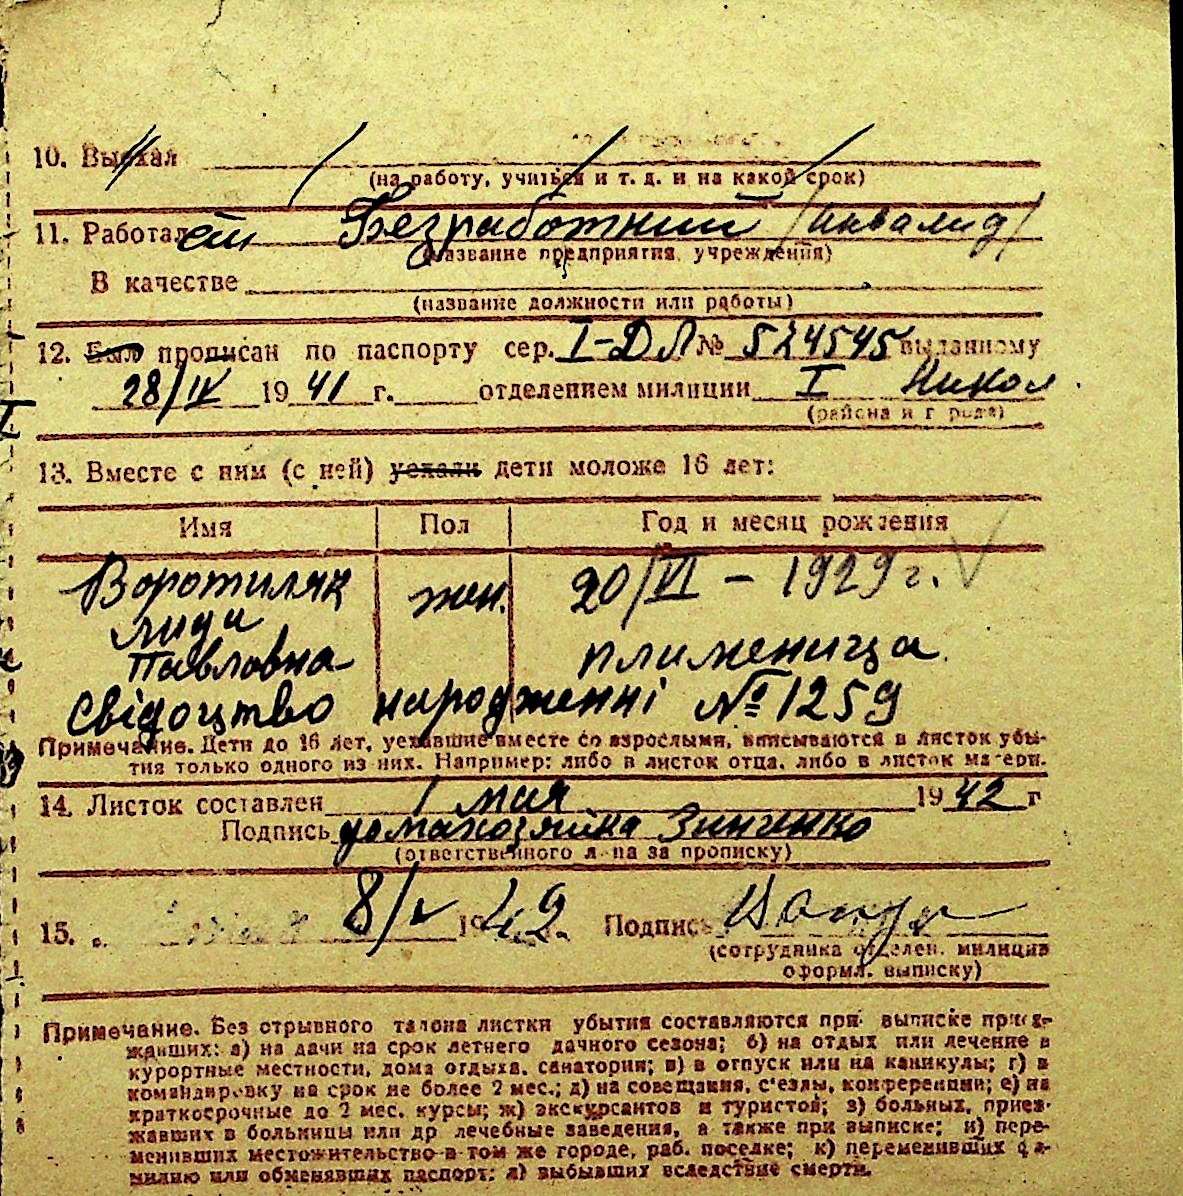 10. Выехал
(на работу, учиться и т. д. и на какой срок)
11. Работал Безработний /инвалид/
(название предприятия, учреждения)
В качестве
(название должности или работы)
12. Был прописан по паспорту сер. I-ДЛ № 524545 выданному
28/IV 1941 г. отделением милиции I Никол
(района и города)
13. Вместе с ним (с ней) уехали дети моложе 16 лет:
Имя Пол Год и месяц рождения
Воротиляк жен. 20/VI – 1929 г.
Лида
Павловна племеница
Свідоцтво народженні № 1259
Примечание. Дети до 16 лет, уехавшие вместе со взрослыми, вписываются в листок убы-
тия только одного из них. Например: либо в листок отца, либо в листок матери.
14. Листок составлен 1 мая 1942 г
Подпись домахозяйка Зинченко
(ответственного лица за прописку)
15. 8/V 1942 Подпись
(сотрудника отделен. милиции
оформл. выписку)
Примечание. Без отрывного талона листки убытия составляются при выписке приез-
жавших: а) на дачи на срок летнего дачного сезона; б) на отдых или лечение в
курортные местности, дома отдыха, санатории; в) в отпуск или на каникулы; г) в
командировку на срок не более 2 мес.; д) на совещания, с'езды, конференции; е) на
краткосрочные до 2 мес. курсы; ж) экскурсантов и туристов; з) больных, приез-
жавших в больницы или др лечебные заведения, а также при выписке; и) пере-
менивших местожительство в том же городе, раб. поселке; к) переменивших фа-
милию или обменявших паспорт; л) выбывших вследствие смерти.